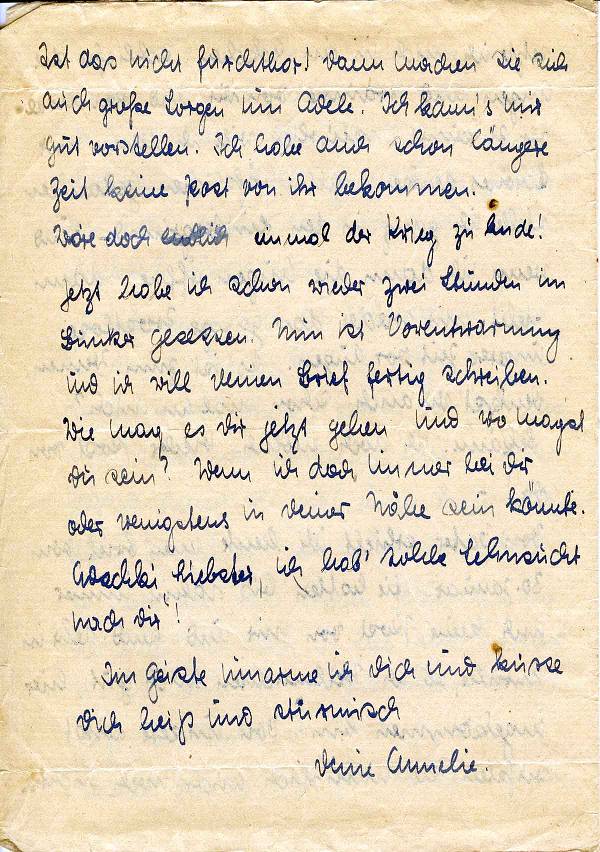 Ist das nicht furchtbar! Dann machen sie sich
auch große Sorgen um Adele. Ich kann's mir
gut vorstellen. Ich habe auch schon längere
Zeit keine Post von ihr bekommen.
Wäre doch endlich einmal der Krieg zu Ende!
Jetzt habe ich schon wieder zwei Stunden im
Bunker gesessen. Nun ist Vorentwarnung
und ich will deinen Brief fertig schreiben.
Wie mag es dir jetzt gehen und wo magst
du sein? Wenn ich doch immer bei dir
oder wenigstens in deiner Nähe sein könnte.
Liebster, ich hab' solche Sehnsucht
nach dir!
Im Geiste umarme ich dich und küsse
dich heiß und stürmisch
deine Annelie.